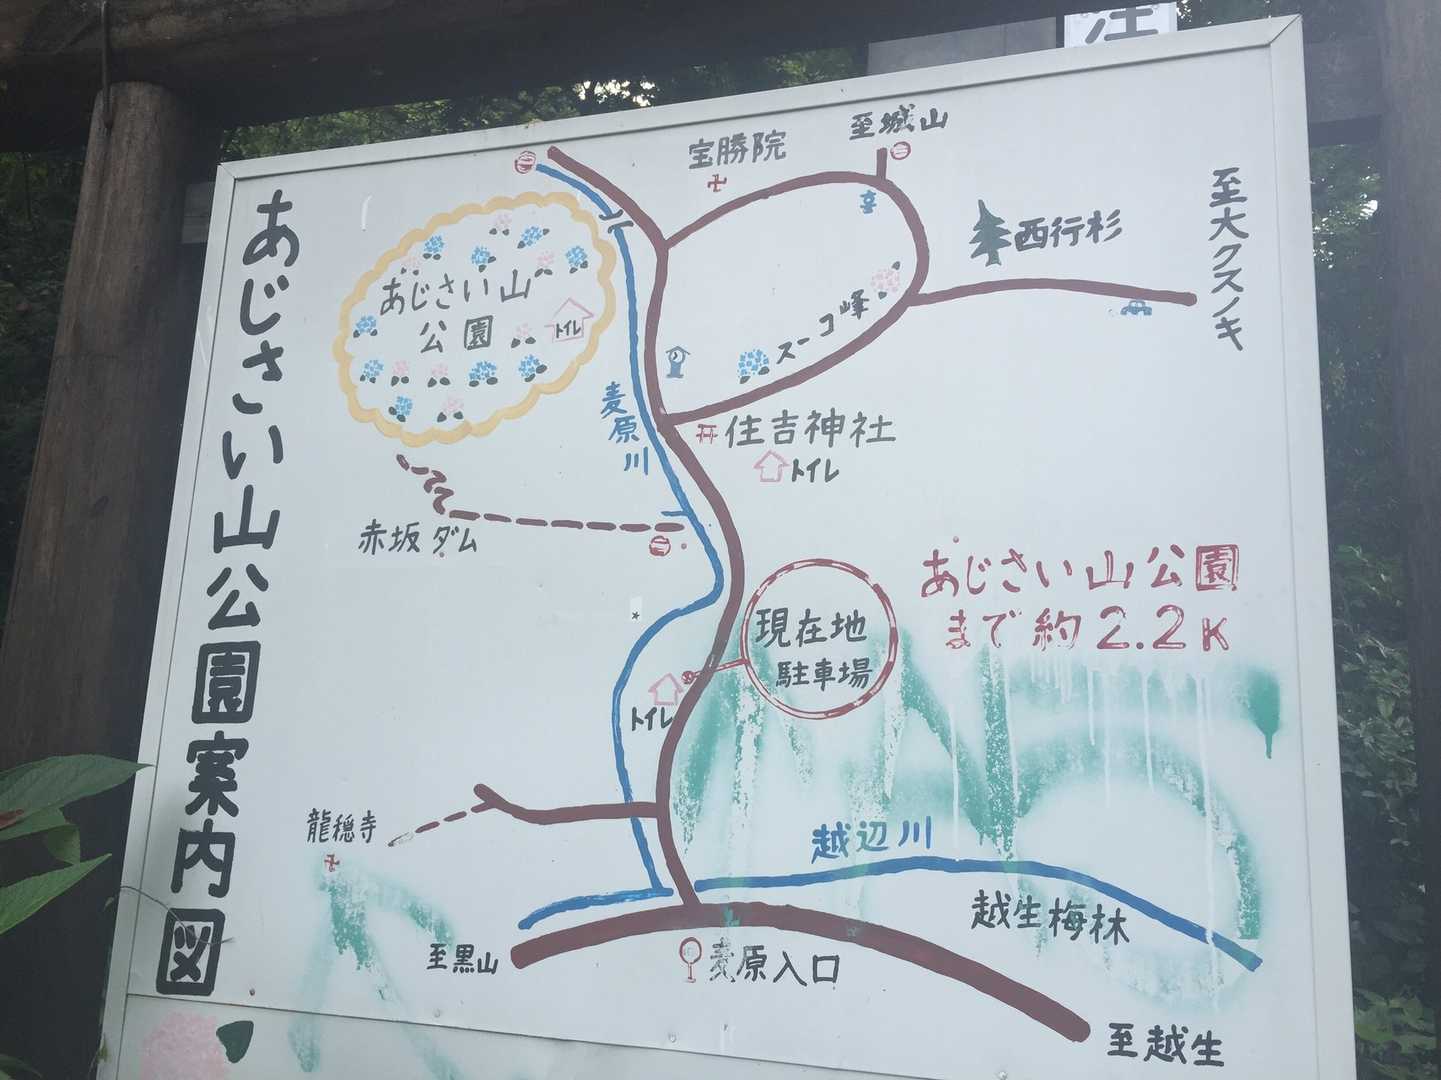 注
あじさい山公園案内図
至城山
宝勝院
至大クスノキ
西行杉
あじさい山
公園
トイレ
スーコ峰
麦原川
住吉神社
トイレ
赤坂ダム
あじさい山公園
まで約2.2K
現在地
駐車場
トイレ
龍穏寺
越辺川
越生梅林
至黒山
麦原入口
至越生